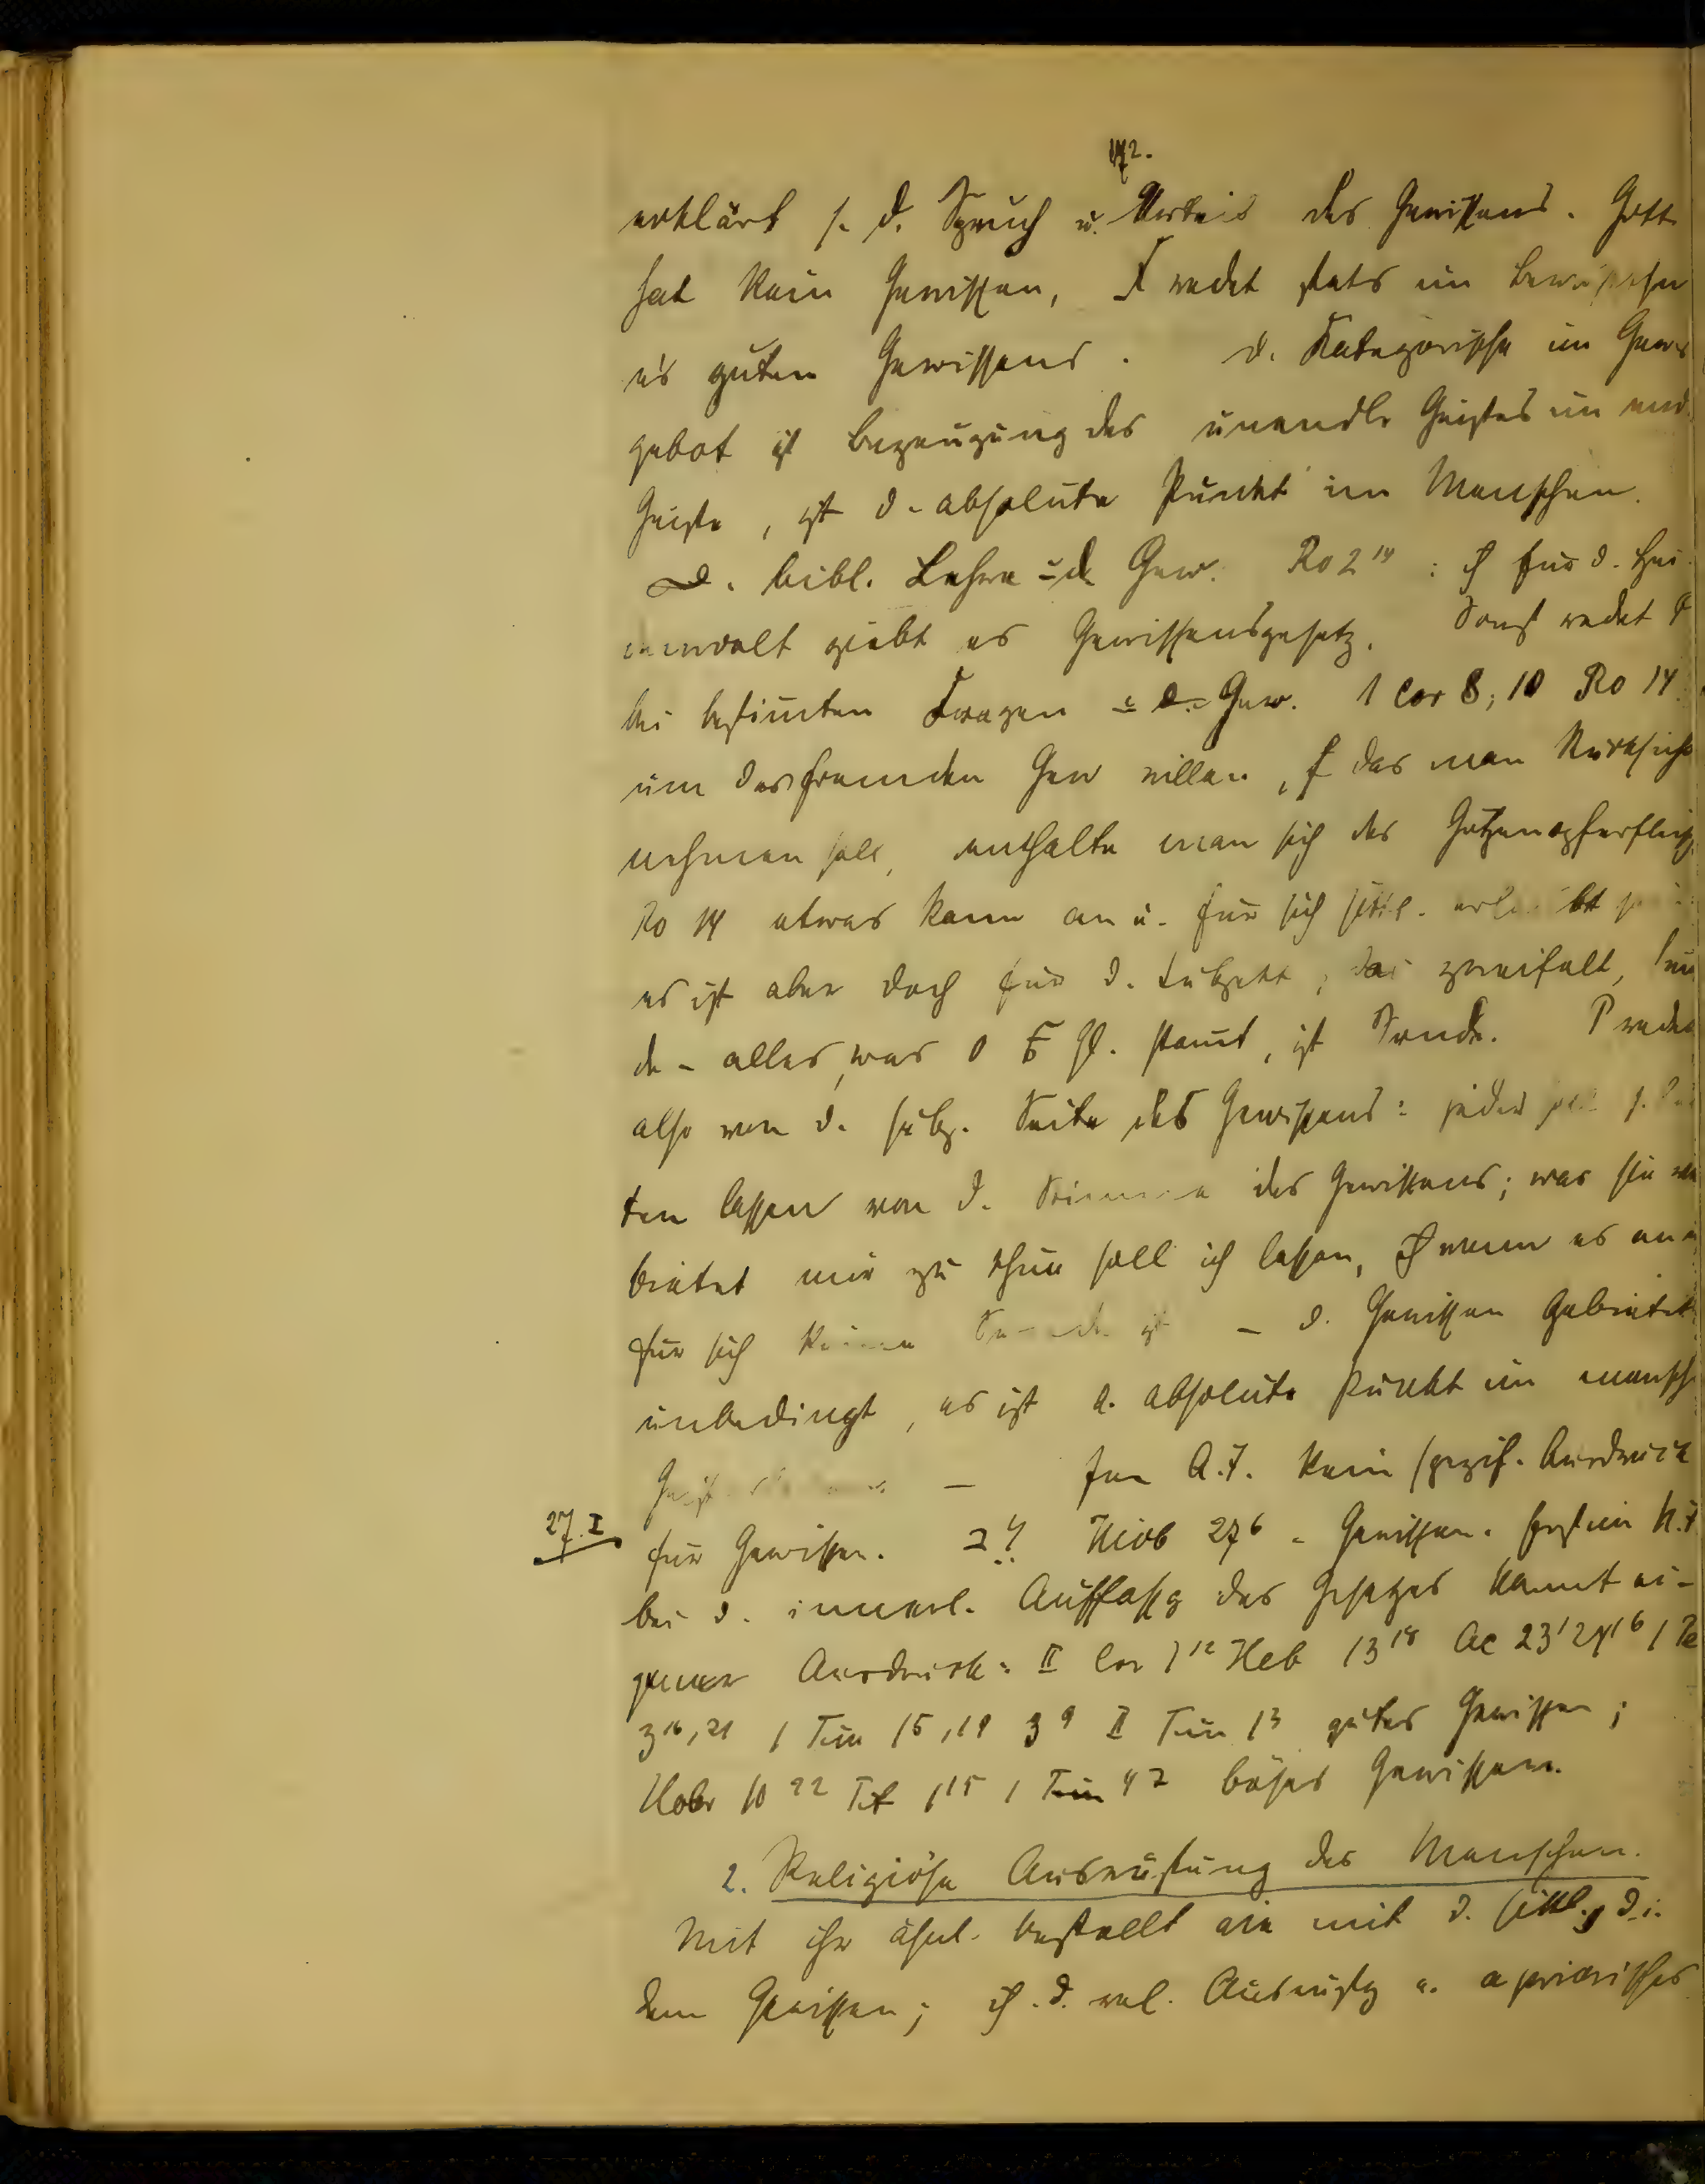 172.
erklärt s. d. Spruch u. Urteil des Gewissens. Gott
hat kein Gewissen, redet stets im Bewußtsein
es guten Gewissens. d. Kategorische im Gewis
gebot ist Bezeugung des unendl. Geistes im end.
Geiste, ist d. absolute Punkt im Menschen.
d. bibl. Lehre Gew. Ro 2 14 : für d. Hei
denwelt giebt es Gewissensgesetz. Sonst redet P
bei bestimten Fragen Gew. 1 Cor 8; 10 Ro 14.
um des fremden Gew willen, das man Rücksicht
nehmen soll, enthalte man sich des Götzenopferfleisch
Ro 14 etwas kann an u. für sich sittl. erlaubt sein
es ist aber doch für d. Subjekt, das zweifelt, Sün
de - alles, was Gl. stamt, ist Sünde. P redet
also von d. subj. Seite des Gewissens: jeder soll s. lei
ten lassen von d. Stimme des Gewissens; was sie ver
bietet mir zu thun soll ich lassen, wenn es an u
für sich keine Sünde ist - d. Gewissen gebietet
unbedingt, es ist d. absolute Punkt im mensch
Geist — Im A.T. kein spezif. Ausdruck
27. I
für Gewissen. Hiob 27 6 = Gewissen. Erst im N.T
bei d. innerl. Auffassg des Gesetzes kommt ei-
gener Ausdruck: II Cor 1 12 Heb 13 18 Ac 23 1 24 16 1 Pe
3 16, 21 1 Tim 1 5, 19 3 9 II Tim 1 3 gutes Gewissen;
Hebr 10 22 Tit 1 15 1 Tim 4 2 böses Gewissen.
2. Religiöse Ausrüstung des Menschen.
Mit ihr ähnl. bestellt wie mit d. sittl., d.i.
dem Gewissen; d. rel. Ausrüstg a. apriorisches